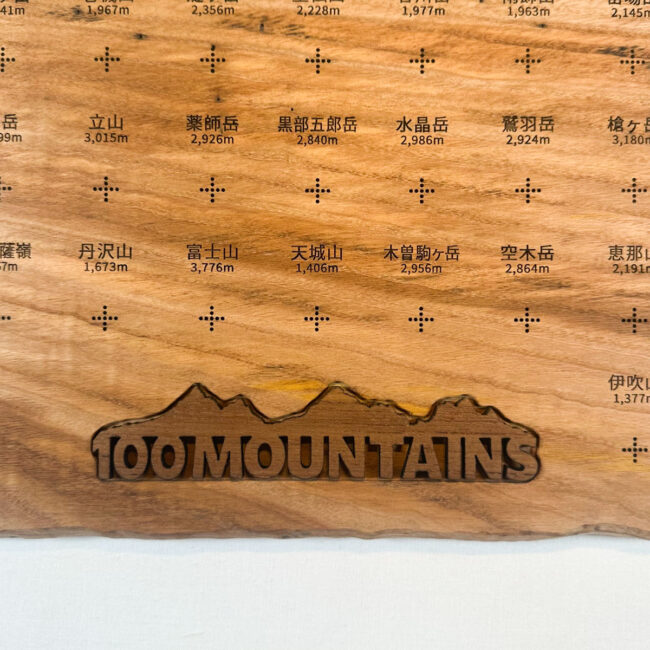 1,967m 2,356m 2,228m 1,977m 1,963m 2,145m
立山 薬師岳 黒部五郎岳 水晶岳 鷲羽岳 槍ヶ岳
3,015m 2,926m 2,840m 2,986m 2,924m 3,180m
丹沢山 富士山 天城山 木曽駒ヶ岳 空木岳 恵那山
1,673m 3,776m 1,406m 2,956m 2,864m 2,191m
伊吹山
1,377m
100MOUNTAINS